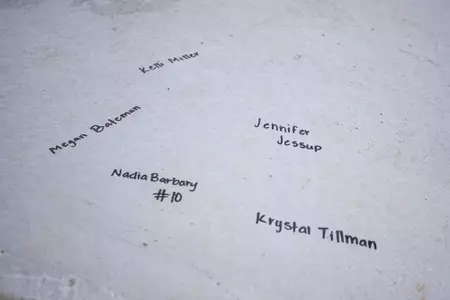 Kelli Miller
Megan Bateman
Jennifer
Jessup
Nadia Barbary
#10
Krystal Tillman